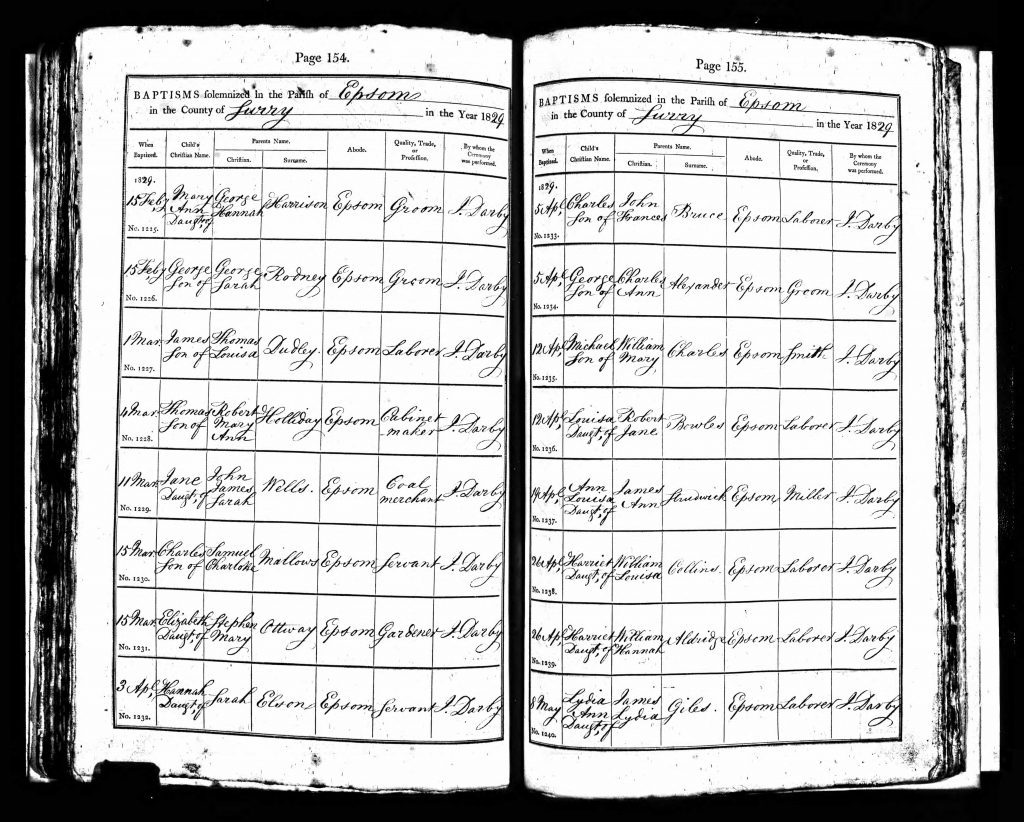 Page 154.
BAPTISMS solemnized in the Parish of Epsom
in the County of Surry in the Year 1829
When Baptized. Child's Christian Name. Parents Name. Christian. Surname. Abode. Quality, Trade, or Profession. By whom the Ceremony was performed.
1829.
15 Feby Mary Ann Daugt, of George Hannah Harrison Epsom Groom J. Darby
No. 1225.
15 Feby George Son of George Sarah Rodney Epsom Groom J. Darby
No. 1226.
1 Mar. James Son of Thomas Louisa Dudley. Epsom Laborer J. Darby
No. 1227.
4 Mar. Thomas Son of Robert Mary Ann Holliday Epsom Cabinet maker J. Darby
No. 1228.
11 Mar. Jane Daugt, of John James Sarah Wells. Epsom Coal merchant J. Darby
No. 1229.
15 Mar. Charles Son of Samuel Charlotte Mallows Epsom Servant J. Darby
No. 1230.
15 Mar. Elizabeth Daugt, of Stephen Mary Ottway Epsom Gardener J. Darby
No. 1231.
3 Apl, Hannah Daugt, of Sarah Elson Epsom Servant J. Darby
No. 1232.
Page 155.
BAPTISMS solemnized in the Parish of Epsom
in the County of Surry in the Year 1829
When Baptized. Child's Christian Name. Parents Name. Christian. Surname. Abode. Quality, Trade, or Profession. By whom the Ceremony was performed.
1829.
5 Apl, Charles Son of John Frances Bruce Epsom Laborer J. Darby
No. 1233.
5 Apl, George Son of Charles Ann Alexander Epsom Groom J. Darby
No. 1234.
12 Apl, Michael Son of William Mary Charles Epsom Smith J. Darby
No. 1235.
12 Apl, Louisa Daugt, of Robert Jane Bowles Epsom Laborer J. Darby
No. 1236.
19 Apl, Ann Louisa Daugt, of James Ann Strudwick Epsom Miller J. Darby
No. 1237.
26 Apl, Harriet Daugt, of William Louisa Collins Epsom Laborer J. Darby
No. 1238.
26 Apl, Harriet Daugt, of William Hannah Aldridge Epsom Laborer J. Darby
No. 1239.
8 May Lydia Ann Daugt, of James Lydia Giles. Epsom Laborer J. Darby
No. 1240.